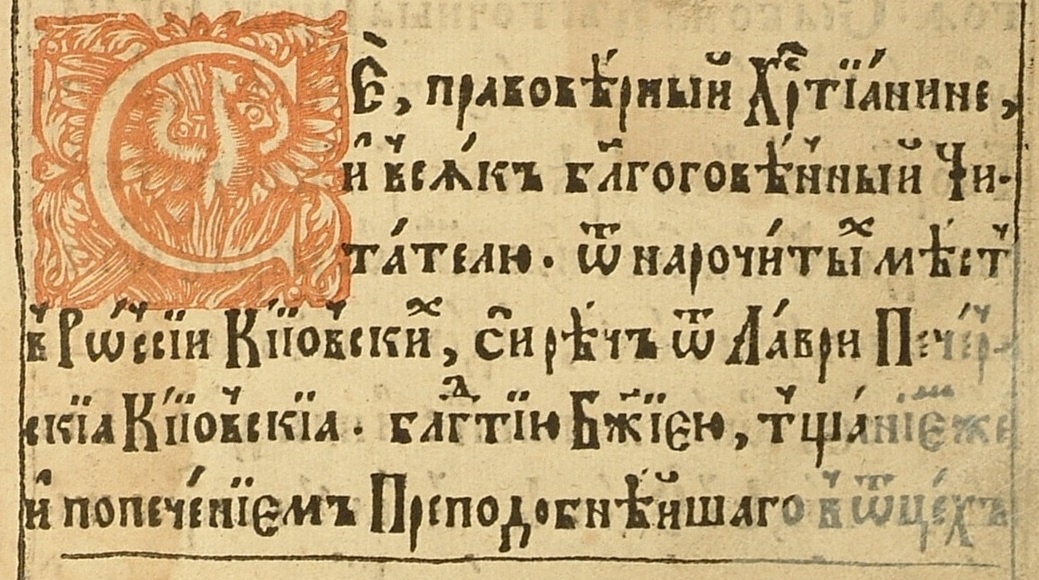 СЀ, правовѣ́рный Хрⷭ҇тїа́нине,
и҆ всѧ́къ бл҃гоговѣ́нный Чи-
та́телю. ѿ нарочи́тыⷯ мѣ́стъ
в Рѡ́ссїи Кі́ѡвскиⷯ, си рѣ́чъ ѿ Ла́ври Пече́р-
скїа Кі́евскїа. бл҃гⷣтїю Бж҃їею, тща́нїемже
и҆ попече́нїемъ Преподобнѣ́йшаго в ѿце́хъ